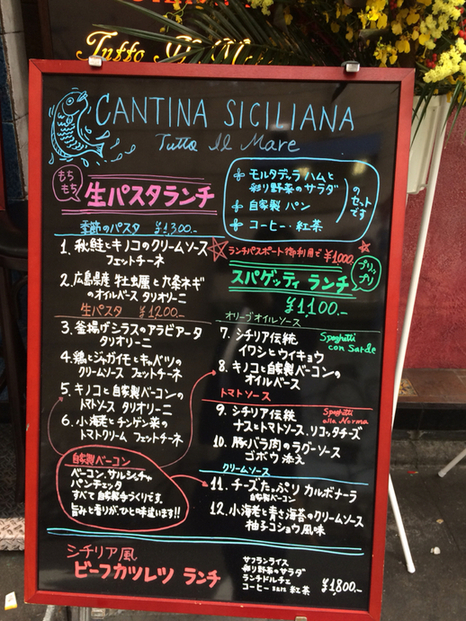 Tutto Il Mare
CANTINA SICILIANA
Tutto Il Mare
もちもち
生パスタランチ
モルタデッラハムと
彩り野菜のサラダ
自家製 パン
コーヒー・紅茶
のセットです
季節のパスタ ¥1300.-
1. 秋鮭とキノコのクリームソース
フェットチーネ
2. 広島県産 牡蠣と九条ネギ
のオイルベース タリオリーニ
生パスタ ¥1200.-
3. 釜揚げシラスのアラビアータ
タリオリーニ
4. 鶏とジャガイモとキャベツの
クリームソース フェットチーネ
5. キノコと自家製ベーコンの
トマトソース タリオリーニ
6. 小海老とチンゲン菜の
トマトクリーム フェットチーネ
自家製ベーコン
ベーコン、サルシッチャ
パンチェッタ
すべて自家製手づくりです。
旨みと香りが、ひと味違います!!
ランチパスポート御利用で ¥1000.
スパゲッティ ランチ
プリップリ
¥1100.-
オリーブオイルソース
7. シチリア伝統
イワシとウイキョウ
Spaghetti
con Sarde
8. キノコと自家製ベーコンの
オイルベース
トマトソース
9. シチリア伝統
ナスとトマトソース、リコッタチーズ
Spaghetti
alla Norma
10. 豚バラ肉のラグーソース
ゴボウ添え
クリームソース
11. チーズたっぷり カルボナーラ
自家製ベーコン
12. 小海老と青さ海苔のクリームソース
柚子コショウ風味
シチリア風
ビーフカツレツ ランチ
サフランライス
彩り野菜のサラダ
ランチドルチェ
コーヒー または 紅茶
¥1800.-